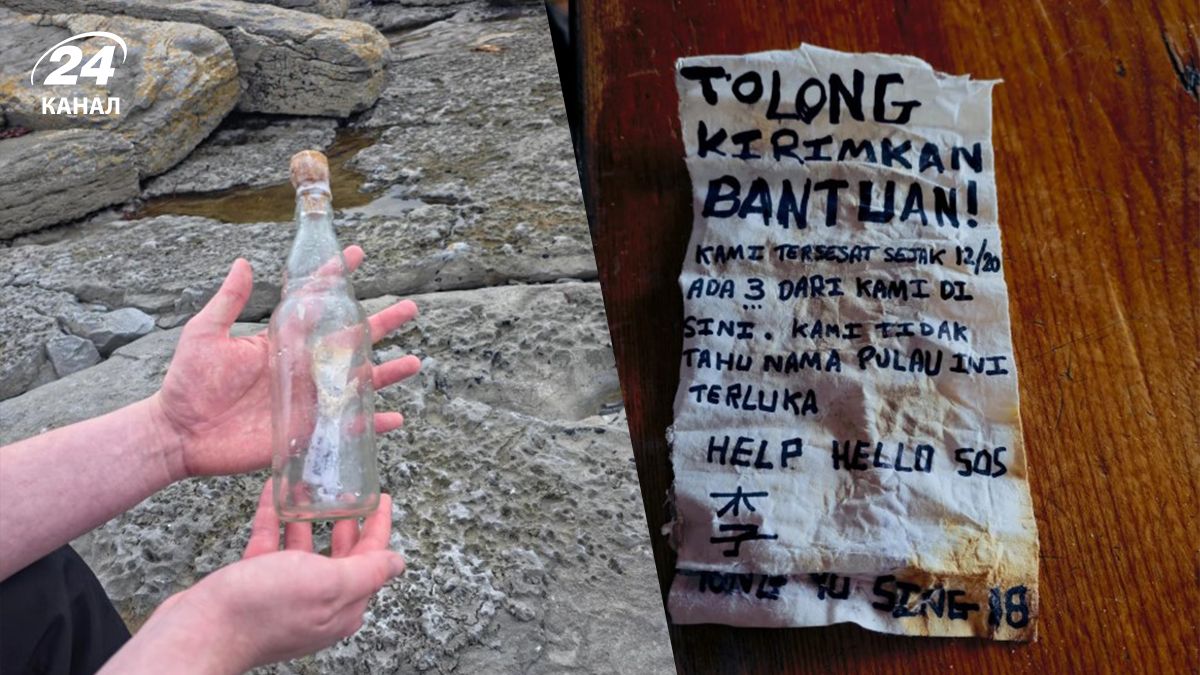 24
КАНАЛ
TOLONG
KIRIMKAN
BANTUAN!
KAMI TERSESAT SEJAK 12/20
ADA 3 DARI KAMI DI
SINI. KAMI TIDAK
TAHU NAMA PULAU INI
TERLUKA
HELP HELLO SOS
李
YU SING 18